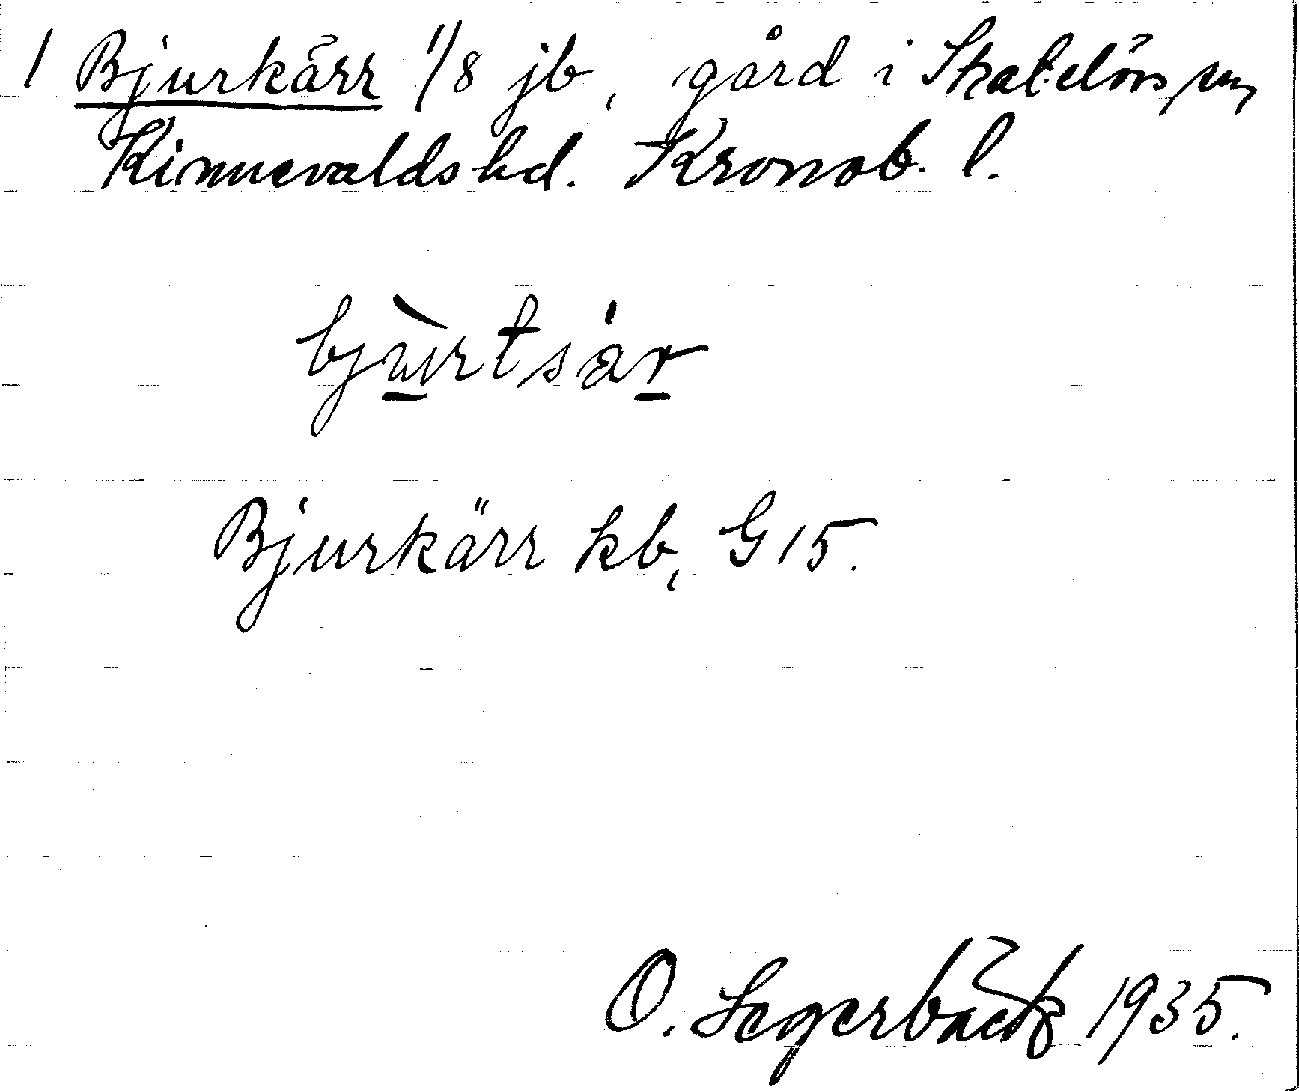 1 Bjurkärr 1/8 jb, gård i Skatelövs sn,
Kinnevalds hd. Kronob. l.
bju̠rtsär̠
Bjurkärr kb, G 15.
O. Segerbäck 1935.